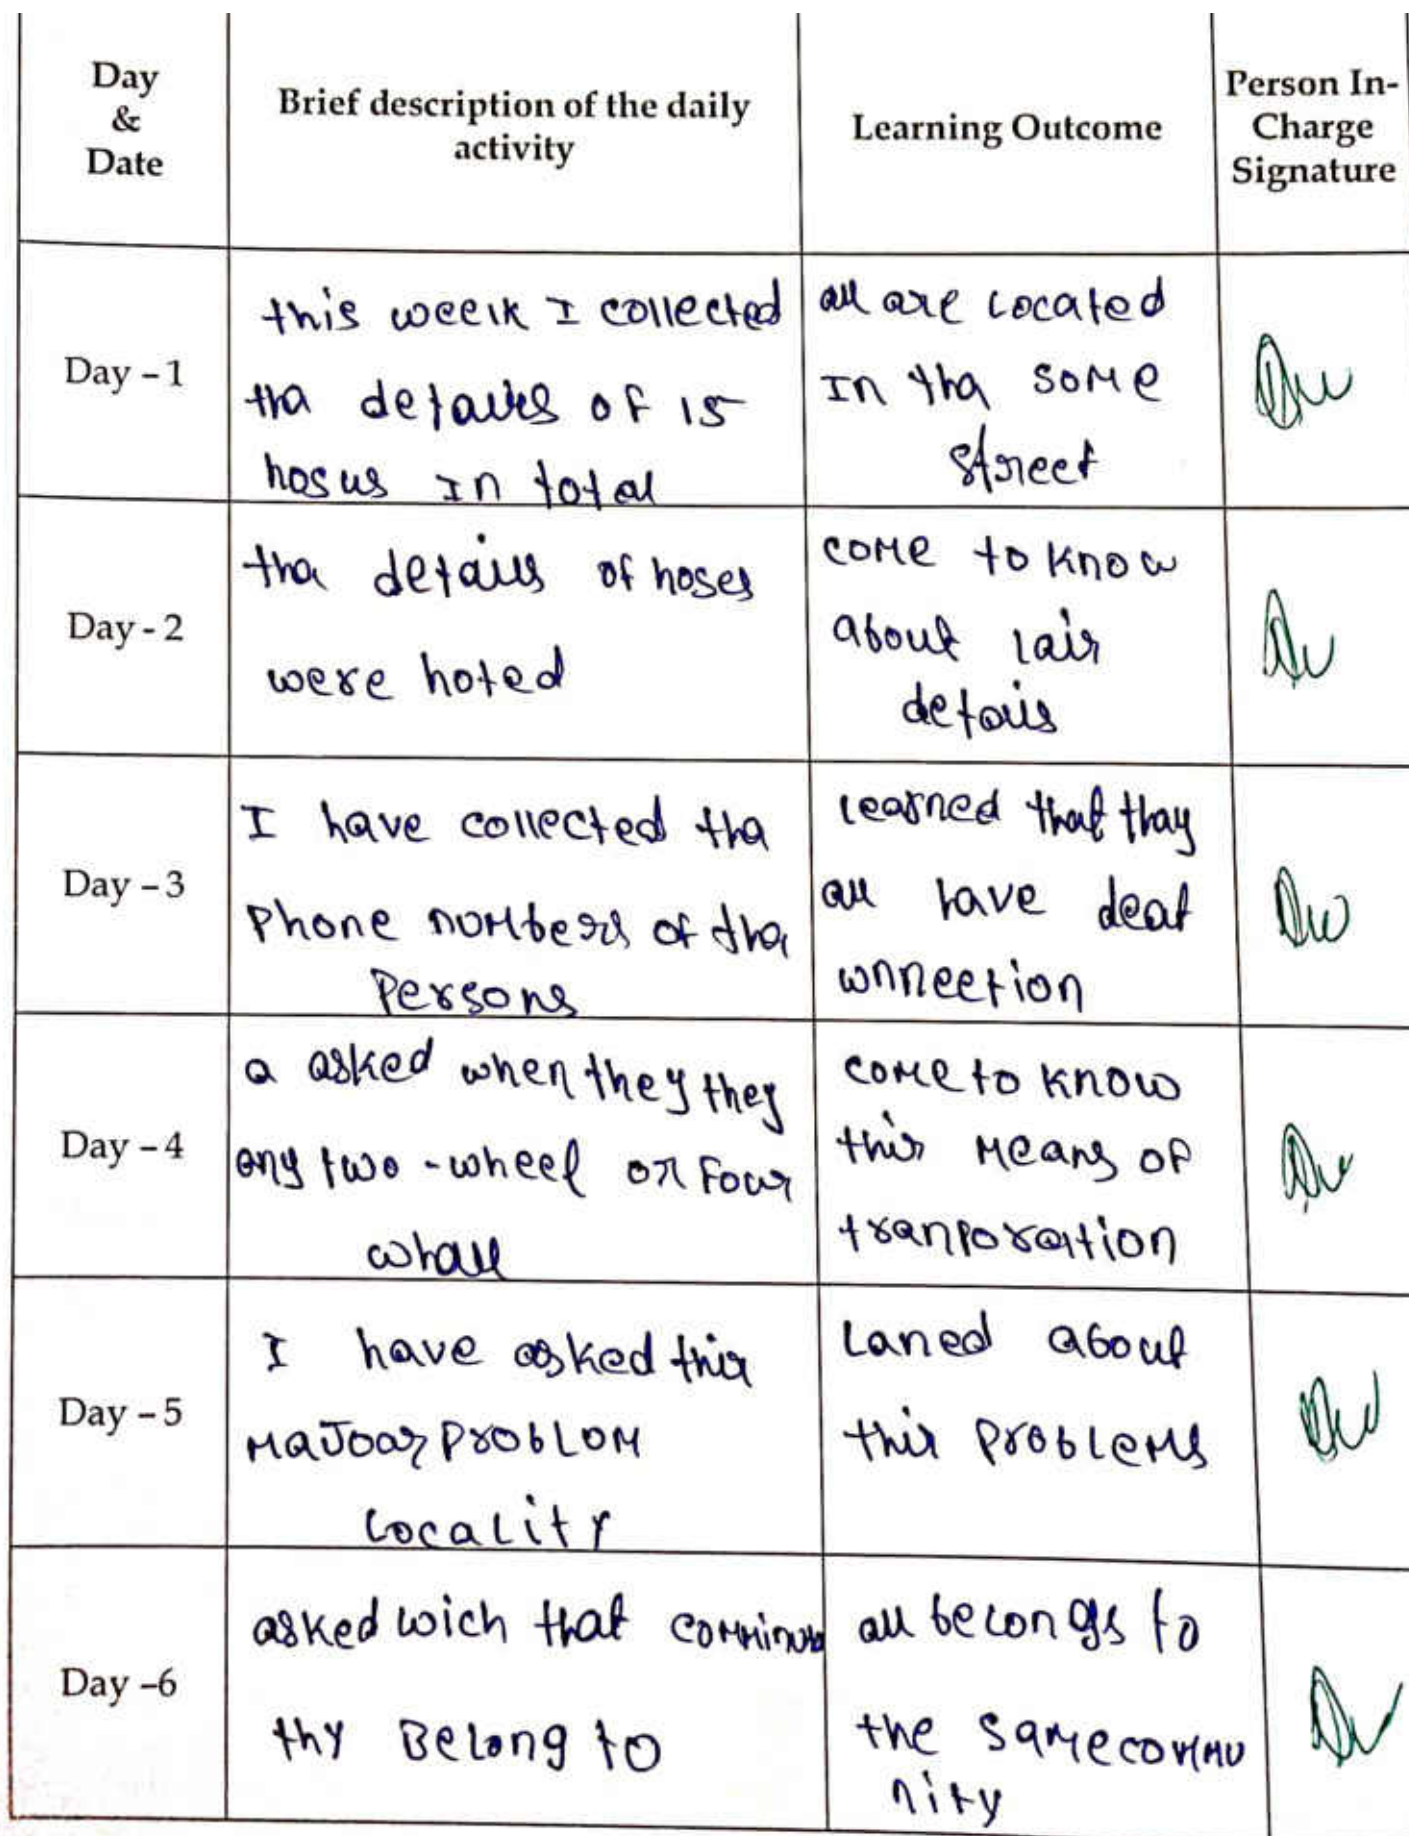 Day
&
Date
Brief description of the daily
activity
Learning Outcome
Person In-
Charge
Signature
Day - 1
this week I collected
tha details of 15
hosus In total
all are located
In tha some
street
Day - 2
tha details of hoses
were hoted
come to know
about lair
detais
Day - 3
I have collected tha
Phone numbers of tha
Persons
learned that thay
all have deat
wnneetion
Day - 4
a asked when they they
any two-wheel or Four
whall
come to know
thir Means of
tranporation
Day - 5
I have asked thir
MaJoar PrObLOM
LocaLitY
Laned about
thir ProbLeMs
Day -6
asked wich that
thy BeLong to
all belongs to
the same commu
nity